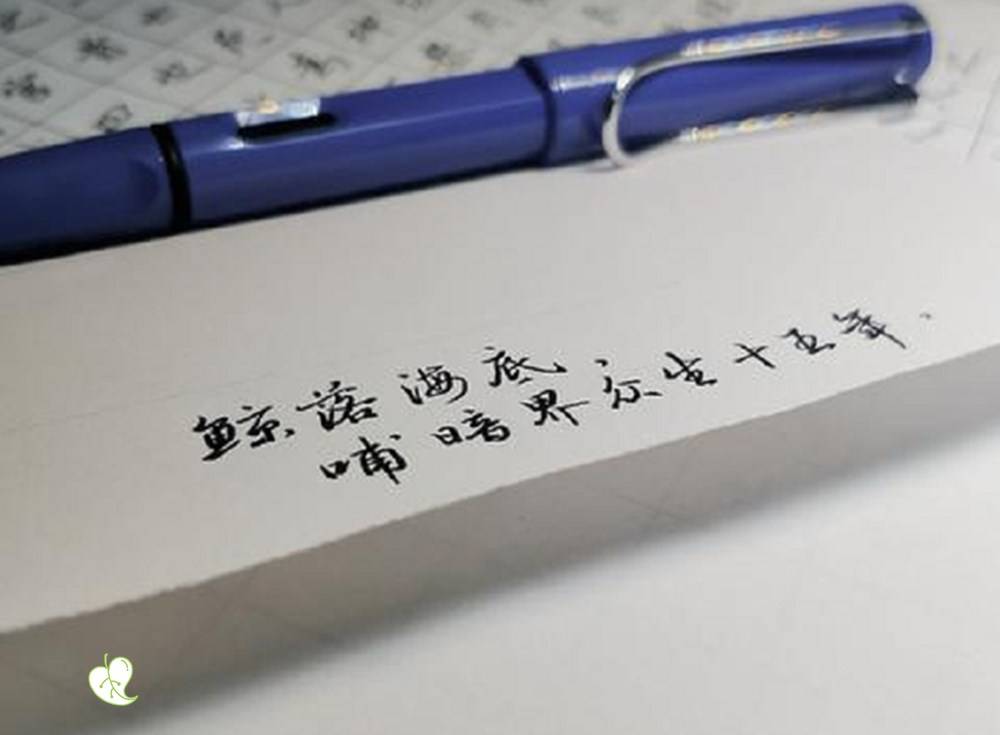 鲸落海底、
哺暗界众生十五年.